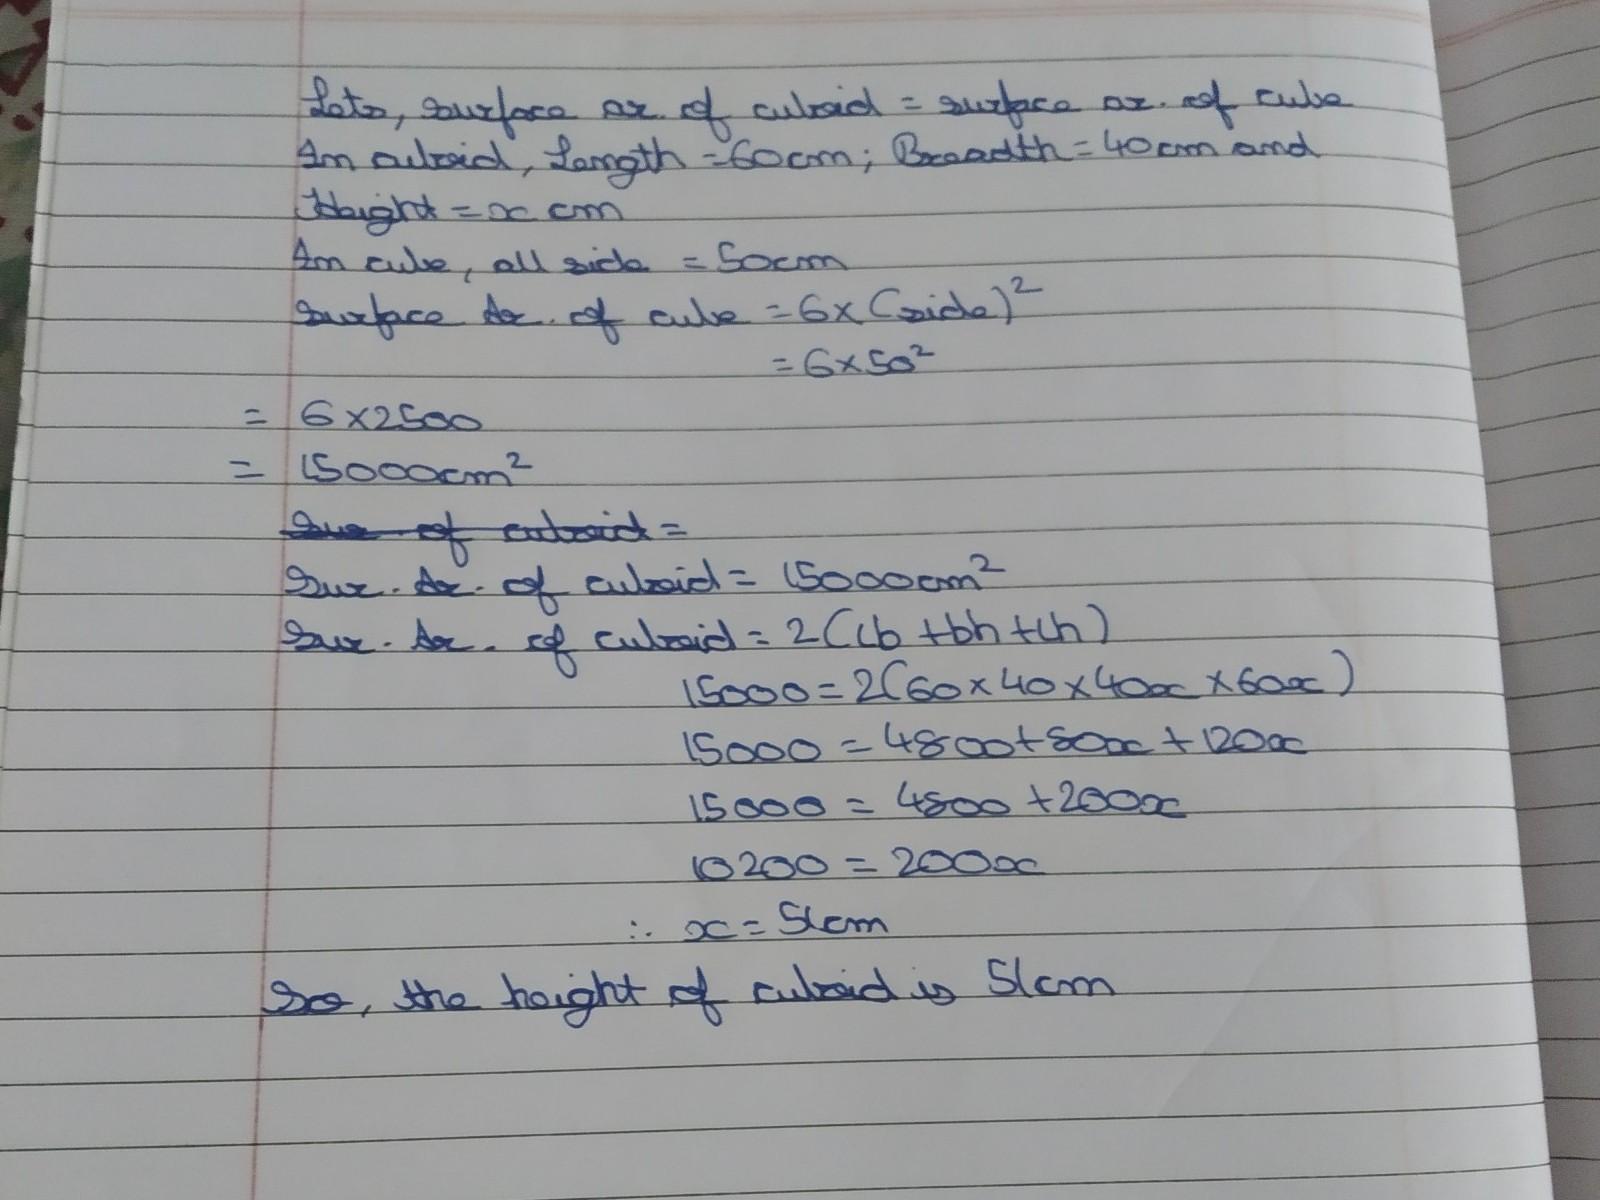 Lets, surface ar. of cuboid = surface ar. of cube
In cuboid, Length = 60cm; Breadth = 40cm and
Height = x cm
In cube, all side = 50cm
Surface Ar. of cube = 6 × (side)²
= 6 × 50²
= 6 × 2500
= 15000cm²
Sur of cuboid =
Sur. Ar. of cuboid = 15000cm²
Sur. Ar. of cuboid = 2(lb + bh + lh)
15000 = 2(60 × 40 × 40x × 60x)
15000 = 4800 + 80x + 120x
15000 = 4800 + 200x
10200 = 200x
∴ x = 51cm
So, the height of cuboid is 51cm